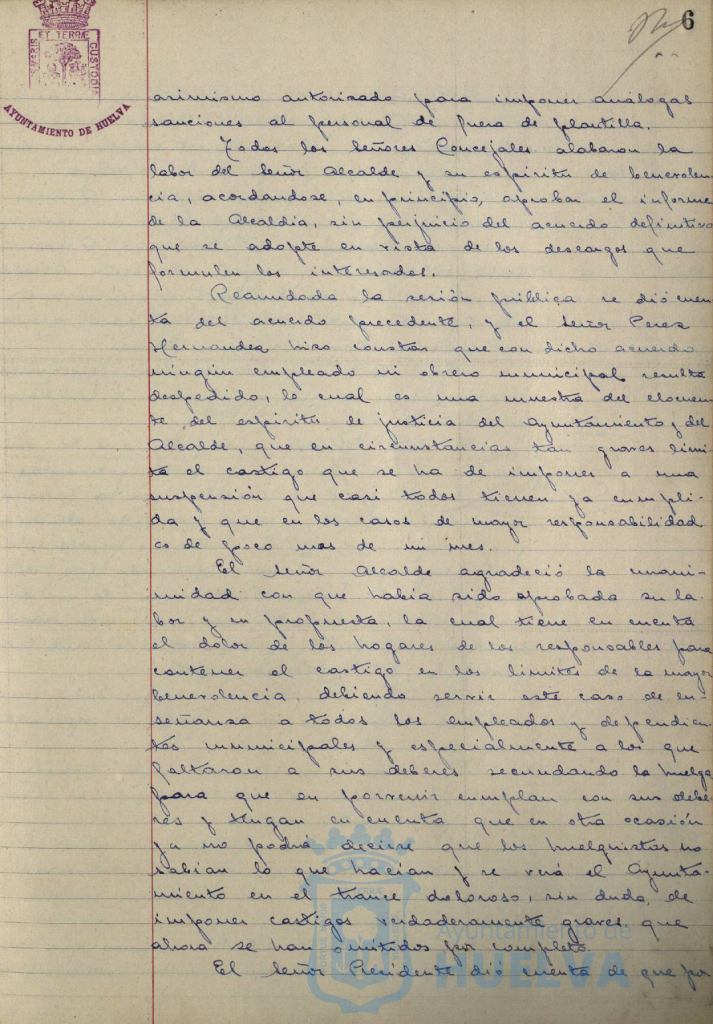 6
ET TERRÆ
CUSTODIA
AYUNTAMIENTO DE HUELVA
asimismo autorizado para imponer análogas
sanciones al personal de fuera de plantilla.
Todos los señores Concejales alabaron la
labor del Señor Alcalde y su espiritu de benevolen-
cia, acordandose, en principio, aprobar el informe
de la Alcaldia, sin perjuicio del acuerdo definitivo
que se adopte en vista de los descargos que
formulen los interesados.
Reanudada la sesión pública se dió cuen
ta del acuerdo precedente, y el Señor Perez
Hernandez hizo constar que con dicho acuerdo
ningún empleado ni obrero municipal resulta
despedido, lo cual es una muestra del elocuen
te del espiritu de justicia del Ayuntamiento y del
Alcalde, que en circunstancias tan graves limi
ta el castigo que se ha de imponer a una
suspensión que casi todos tienen ya cumpli-
da y que en los casos de mayor responsabilidad
es de poco mas de un mes.
El Señor Alcalde agradeció la unani-
midad con que habia sido aprobada su la
bor y su propuesta, la cual tiene en cuenta
el dolor de los hogares de los responsables para
contener el castigo en los limites de la mayor
benevolencia, debiendo servir este caso de en-
señanza a todos los empleados y dependien-
tes municipales y especialmente a los que
faltaron a sus deberes secundando la huelga
para que en porvenir cumplan con sus debe
res y tengan en cuenta que en otra ocasión
ya no podrá decirse que los huelguistas no
sabian lo que hacian y se verá el Ayunta-
miento en el trance doloroso, sin duda, de
imponer castigos verdaderamente graves que
ahora se han omitidos por completo.
El Señor Presidente dió cuenta de que por
Ayuntamiento de
HUELVA